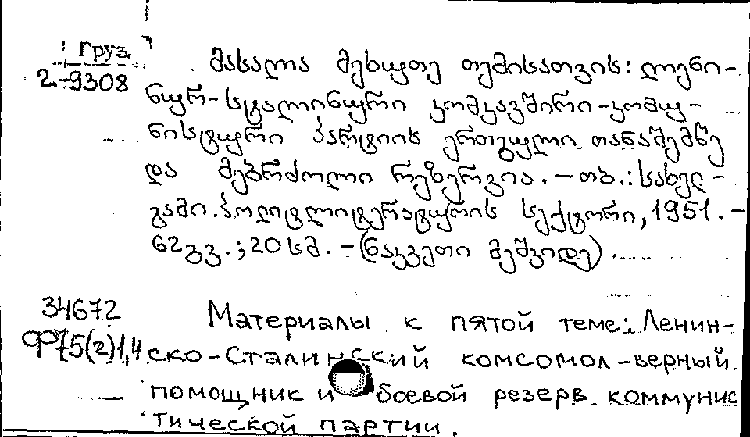 Груз.
2-9308
მასალა მეხუთე თემისათვის: ლენი-
ნურ-სტალინური კომკავშირი-კომუ-
ნისტური პარტიის ერთგული თანაშემწე
და მებრძოლი რეზერვია. – თბ.: სახელ-
გამი. პოლიტლიტერატურის სექტორი, 1951. –
62 გვ.; 20 სმ. – (ნაკვეთი მეშვიდე).
34672
ФР75(2)1,4
Материалы к пятой теме: Ленин-
ско-Сталинский комсомол-верный
помощник и боевой резерв коммунис
тической партии.